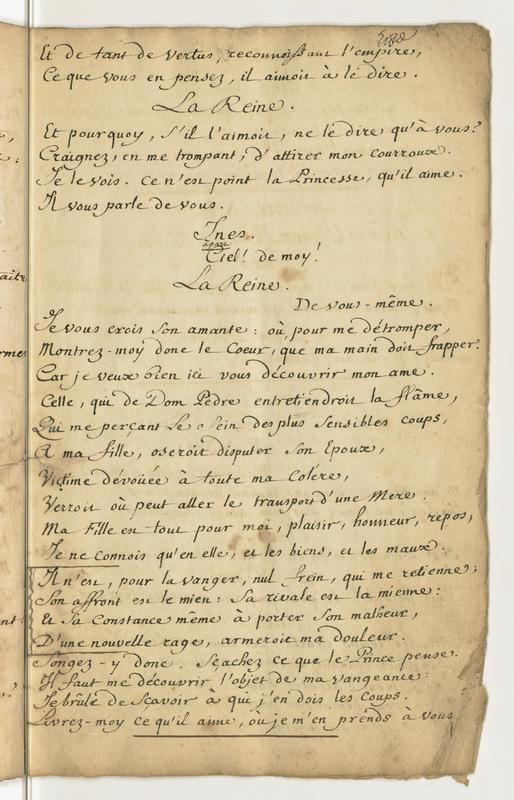 Et de tant de vertus, reconnoissant l'empire,
Ce que vous en pensez, il aimoit à le dire.
La Reine.
Et pourquoy, s'il l'aimoit, ne le dire qu'à vous?
Craignez, en me trompant, d'attirer mon courroux.
Je le vois. Ce n'est point la Princesse, qu'il aime.
Il vous parle de vous.
Ines.
à part
Ciel! de moy!
La Reine.
De vous-même.
Je vous crois son amante: où, pour me détromper,
Montrez-moy donc le Coeur, que ma main doit frapper.
Car je veux bien ici vous découvrir mon ame.
Celle, qui de Dom Pedre entretiendroit la flâme,
Qui me perçant le Sein des plus sensibles coups,
A ma fille, oseroit disputer son Epoux,
Victime dévoüée à toute ma Colere,
Verroit où peut aller le transport d'une Mere.
Ma Fille est tout pour moi, plaisir, honneur, repos,
Je ne connois qu'en elle, et les biens, et les maux.
Il n'est, pour la vanger, nul frein, qui me retienne;
Son affront est le mien: Sa rivale est la mienne:
Et sa Constance même à porter son malheur,
D'une nouvelle rage, armeroit ma douleur.
Songez-y donc. Sçachez ce que le Prince pense.
Il faut me découvrir l'objet de ma vangeance:
Je brûle de sçavoir à qui j'en dois les coups.
Livrez-moy ce qu'il aime, où je m'en prends à vous